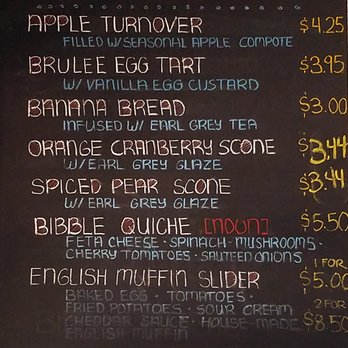 APPLE TURNOVER $4.25
FILLED W/SEASONAL APPLE COMPOTE
BRULEE EGG TART $3.95
W/VANILLA EGG CUSTARD
BANANA BREAD $3.00
INFUSED W/ EARL GREY TEA
ORANGE CRANBERRY SCONE $3.44
W/EARL GREY GLAZE
SPICED PEAR SCONE $3.44
W/ EARL GREY GLAZE
BIBBLE QUICHE [NOUN] $5.50
FETA CHEESE · SPINACH · MUSHROOMS ·
CHERRY TOMATOES · SAUTEED ONIONS
1 FOR
ENGLISH MUFFIN SLIDER $5.00
BAKED EGG · TOMATOES ·
2 FOR
FRIED POTATOES · SOUR CREAM
CHEDDAR SAUCE · HOUSE-MADE $8.50
ENGLISH MUFFIN